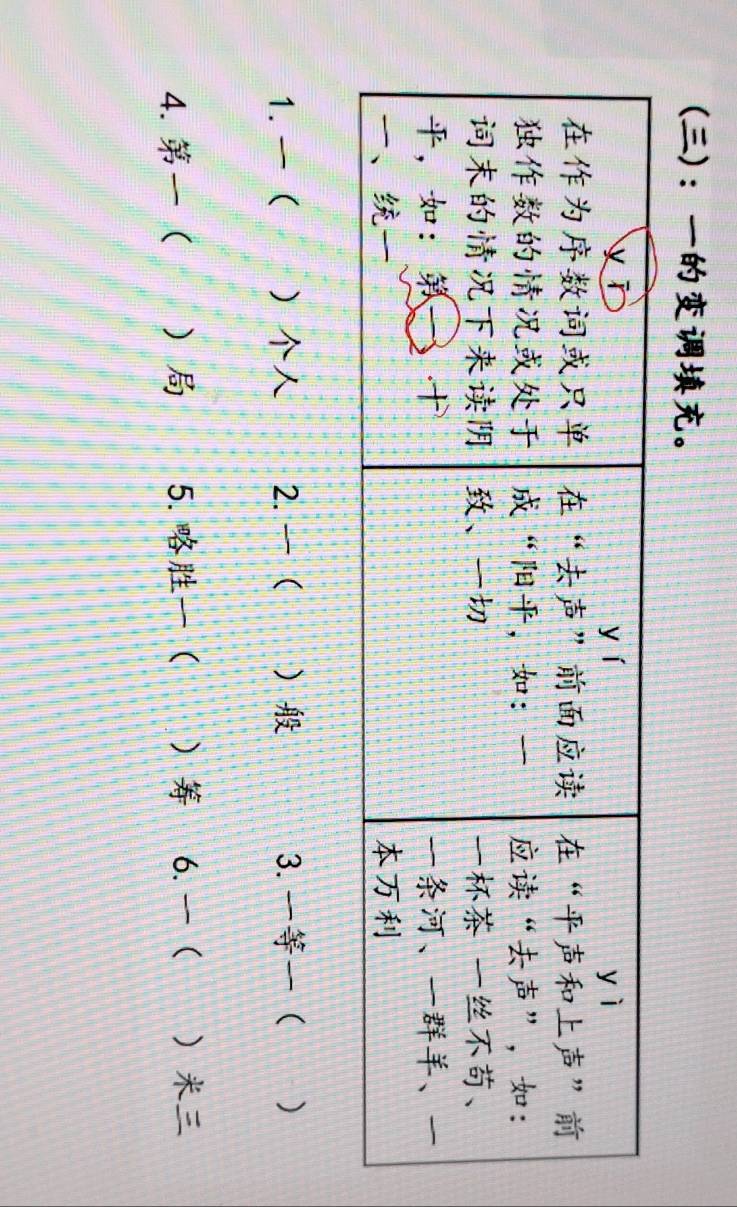 (三)：一的变调填充。
yī
在作为序数词或只单
独作数的情况或处于
词末的情况下来读阴
平，如：第一、十
一、统一
yí
在“去声”前面应读
成“阳平，如：一
致、一切
yì
在“平声和上声”前
应读“去声”，如：
一杯茶 一丝不苟、
一条河、一群羊、一
本万利
1. 一（ ）个人
2. 一（ ）般
3. 一等一（ ）
4. 第一（ ）局
5. 略胜一（ ）筹
6. 一（ ）米三